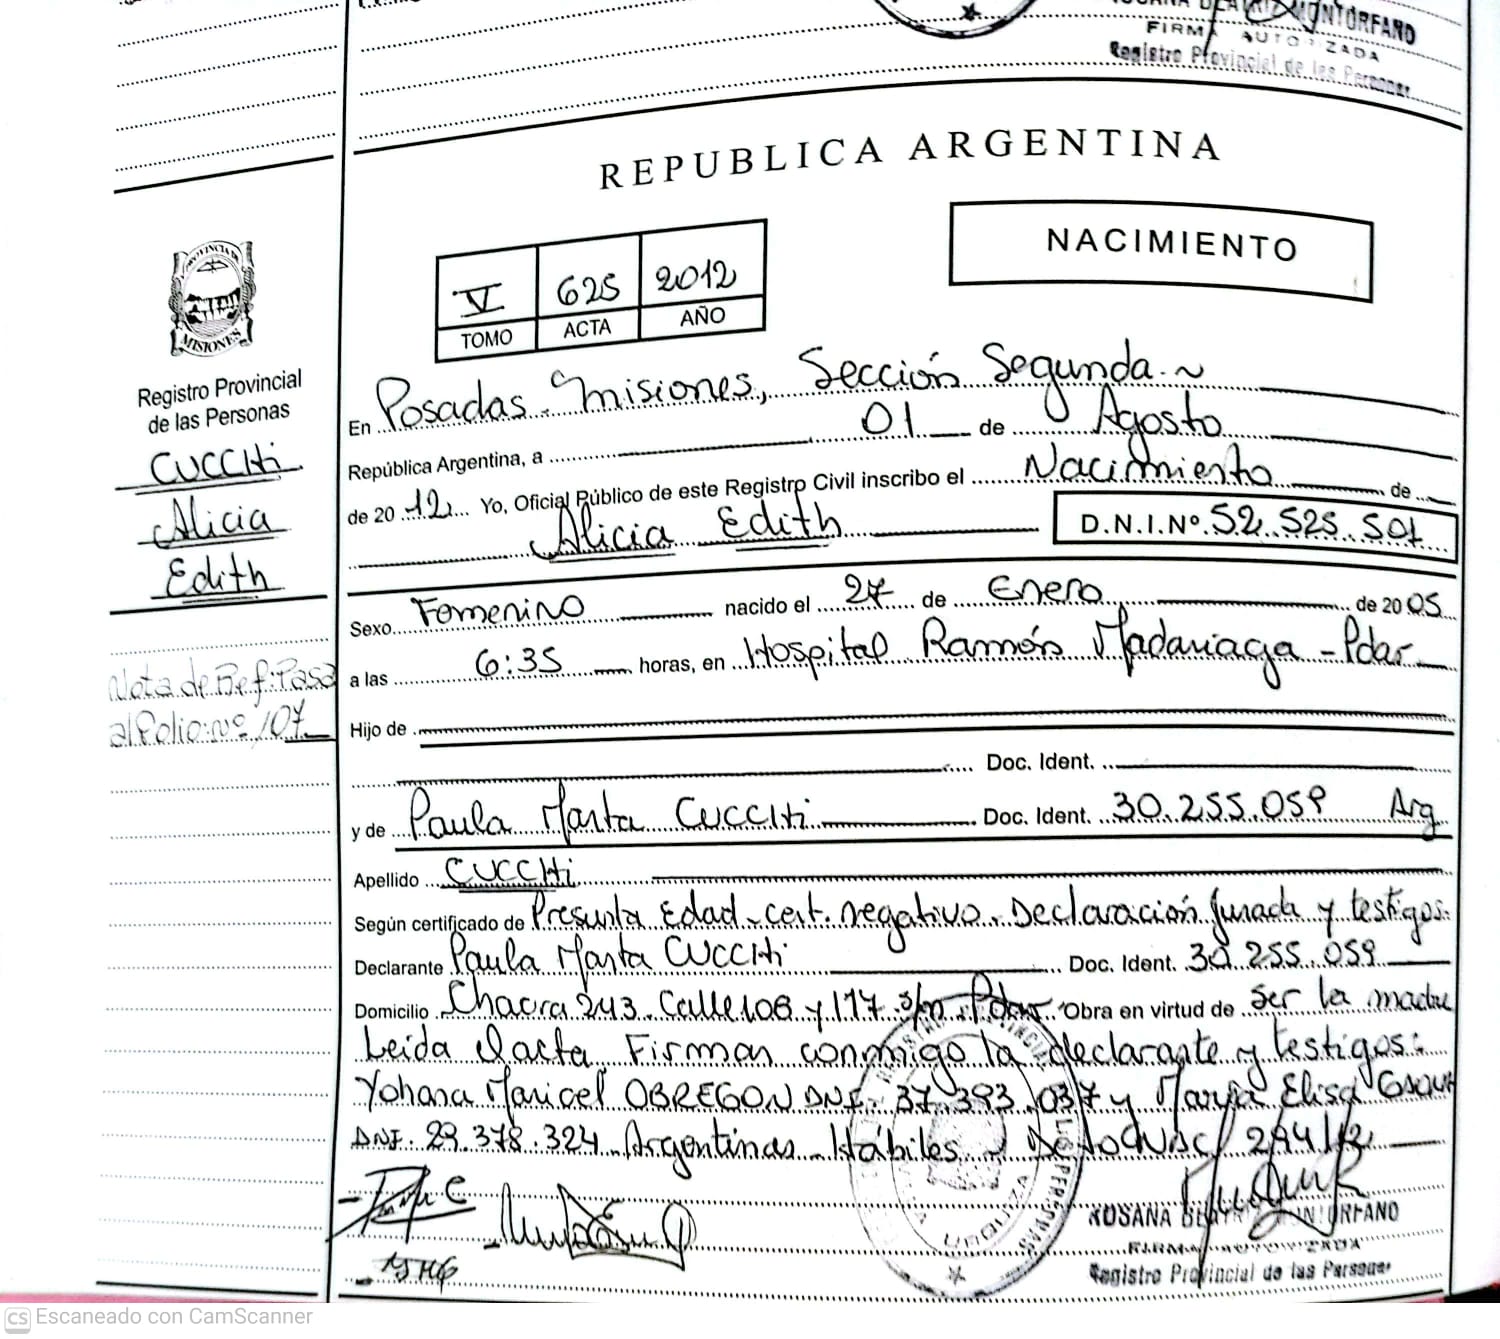 MONTORFANO
FIRMA AUTORIZADA
Registro Provincial de las Personas
REPUBLICA ARGENTINA
NACIMIENTO
V 625 2012
TOMO ACTA AÑO
PROVINCIA DE
MISIONES
Registro Provincial
de las Personas
CUCCHi
Alicia
Edith
Nota de Ref: Pasa
al folio: nº 107
En Posadas - Misiones, Sección Segunda.~
República Argentina, a 01 de Agosto
de 2012 Yo, Oficial Público de este Registro Civil inscribo el Nacimiento de
Alicia Edith D.N.I.Nº 52.525.501
Sexo Femenino nacido el 27 de Enero de 2005
a las 6:35 horas, en Hospital Ramón Madariaga - Pdas
Hijo de
Doc. Ident.
y de Paula Marta CUCCHi Doc. Ident. 30.255.059 Arg
Apellido CUCCHi
Según certificado de Presunta Edad - cert. negativo. Declaración Jurada y testigos.
Declarante Paula Marta CUCCHi Doc. Ident. 30.255.059
Domicilio Chacra 243. Calle 108 y 117 s/n. Pdas Obra en virtud de ser la madre
Leida el acta Firman conmigo la declarante y testigos:
Yohana Maricel OBREGON DNI. 37.393.037 y María Elisa
DNI. 29.378.324 Argentinas - Hábiles -
ROSANA BEATRIZ MONTORFANO
FIRMA AUTORIZADA
Registro Provincial de las Personas
CS Escaneado con CamScanner